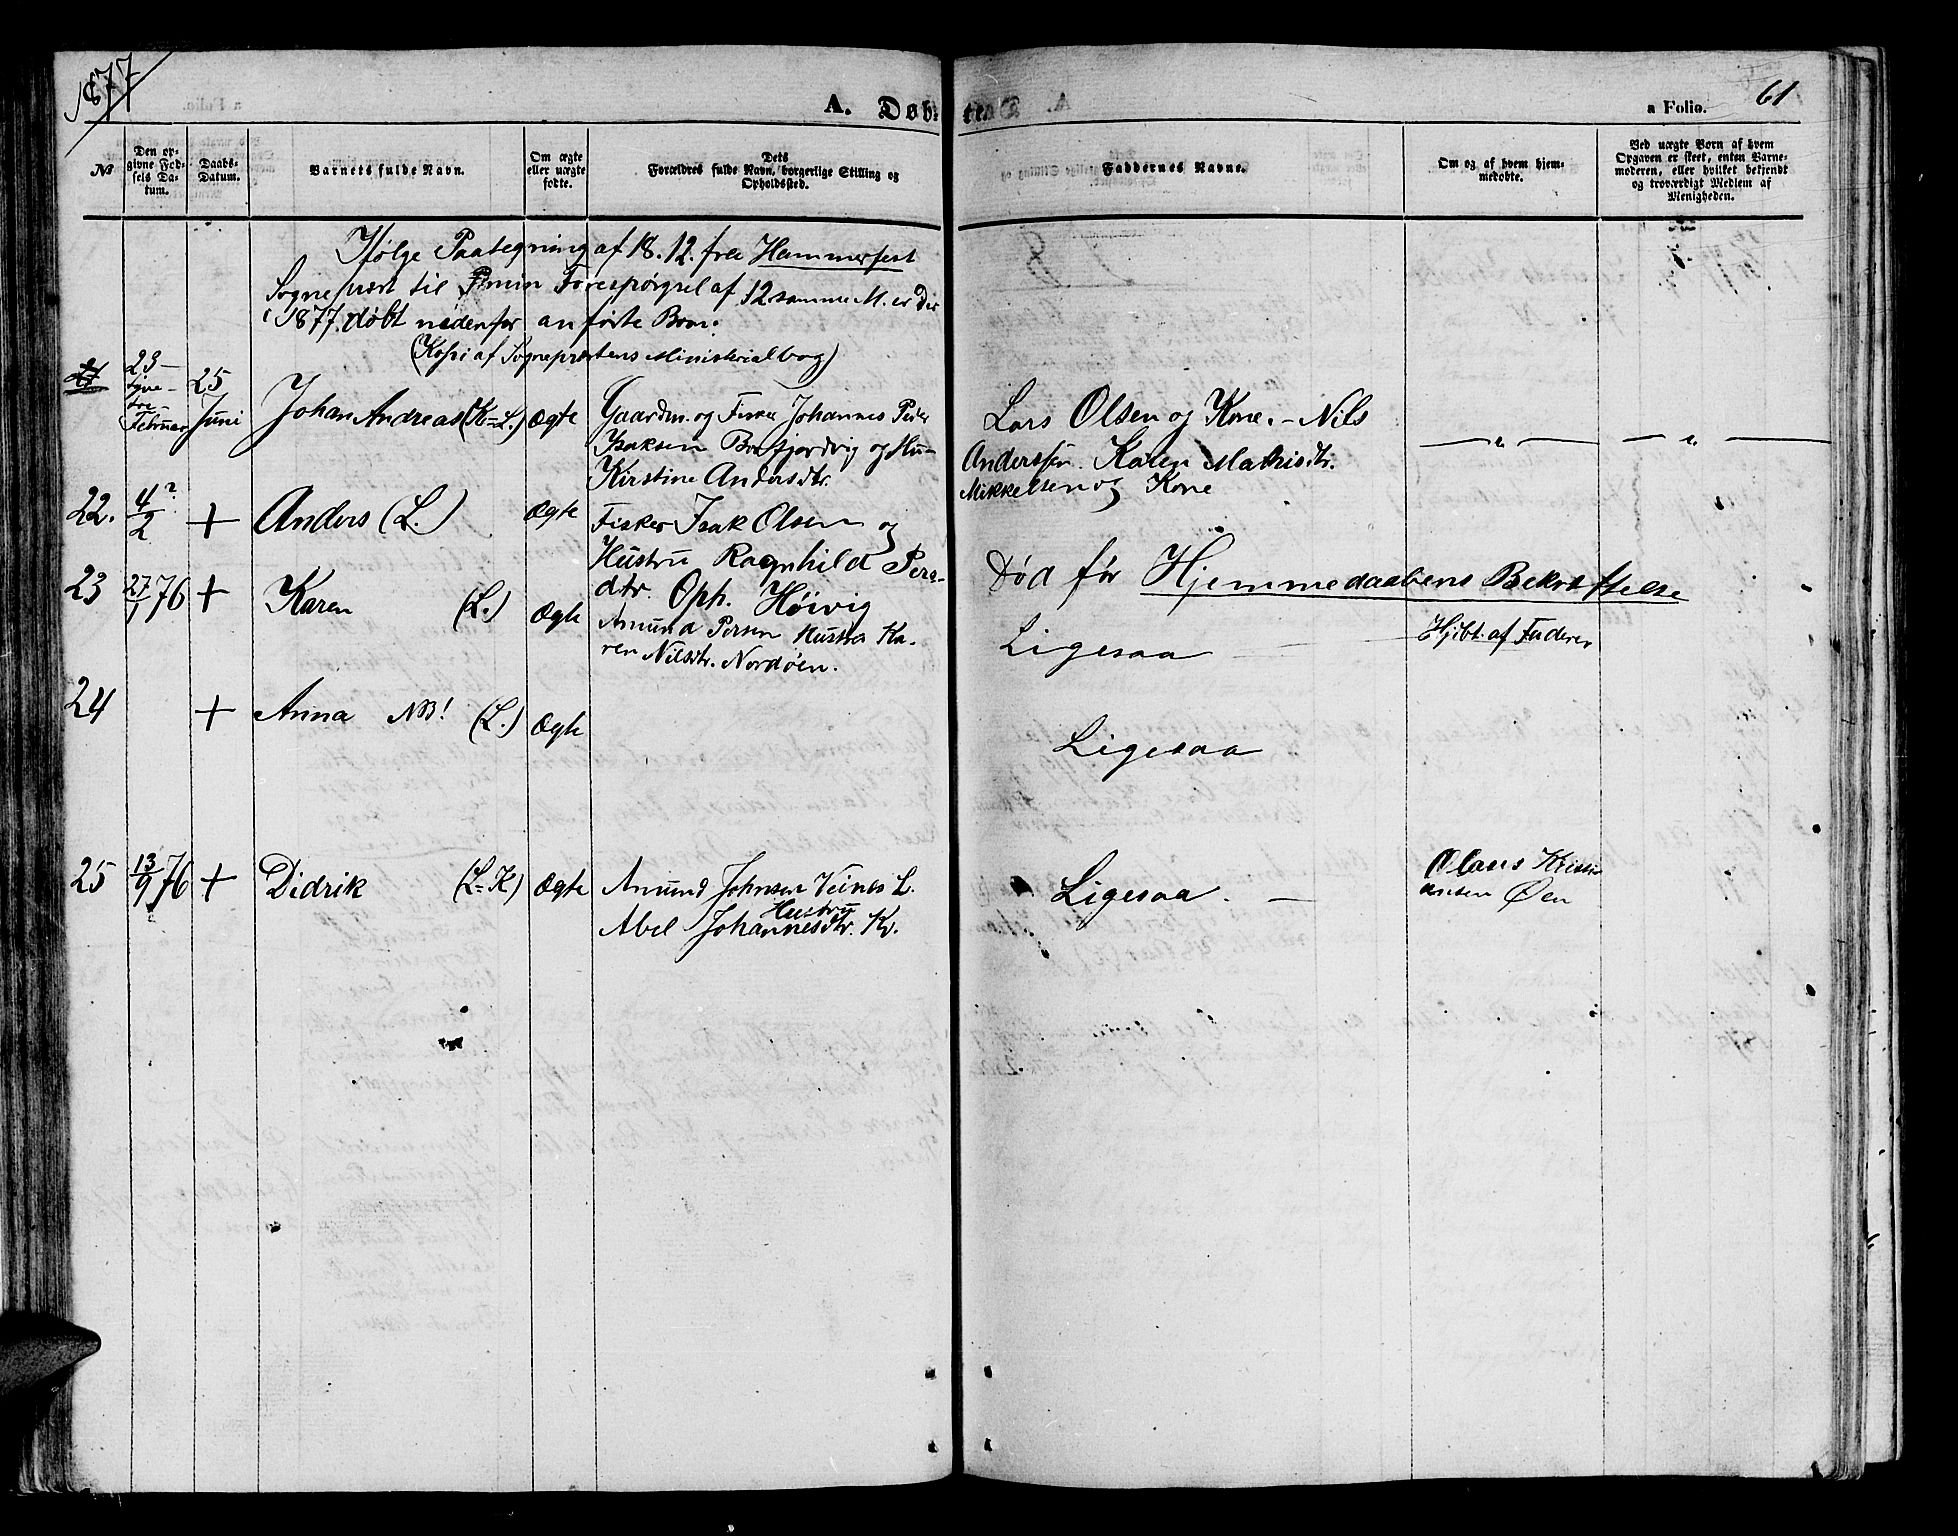 1877
A. Døbte
a Folio.
61
No
Den opgivne Fødsels Datum.
Daabs-Datum.
Barnets fulde Navn.
Om ægte eller uægte fødte.
Dets Forældres fulde Navn, borgerlige Stilling og Opholdssted.
Faddernes Navne.
Om og af hvem hjemmedøbte.
Ved uægte Børn af hvem Opgaven er skeet, enten Barnemoderen, eller hvilket bekjendt og troværdigt Medlem af Menigheden.
Ifølge Paategning af 18.12. fra Hammerfest
Sognepræst til min Forespørgsel af 12 samme M. er der
i 1877 døbt nedenfor anførte Børn.
(Kopi af Sognepræstens Ministerialbog)
21
23
Februar
25
Juni
Johan Andreas (K=L.)
Ægte
Gaardm. og Fisker Johannes Peder
Isaksen og Hu-
Kirstine Andersdtr.
Lars Olsen og Kone. - Nils
Anderssen. Karen Mathisdtr.
Mikkelsen og Kone
— " — — " —
22.
4?/2
+
Anders (L.)
Ægte
Fisker Isak Olsen og
Hustru Ragnhild Pers-
dtr. Oph. Höivig
Død før Hjemmedaabens Bekræftelse
23
27/1 76
+
Karen (L.)
Ægte
Amund Persen Hustru Ka-
ren Nilsdtr. Nordøen.
Ligesaa
Hjdbt. af Faderen
24
+
Anna NB! (L.)
Ægte
Ligesaa
25
13/9 76
+
Didrik (L=K)
Ægte
Amund Johnsen Veines L.
Hustru
Abel Johannesdtr. Kv.
Ligesaa. —
Olaus Kristi
ansen Øen